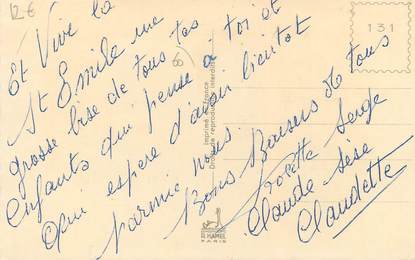 12€
Et Vive la
St Emile une
grosse bise de tous tes
enfants qui pense à toi et
Qui espere d'avoir bientot
parmie nous.
Bons Baisers de tous
Josette Serge
Claude
Claudette
131
Imprimé en France
Droits de reproduction interdits
R. MAMEL
PARIS